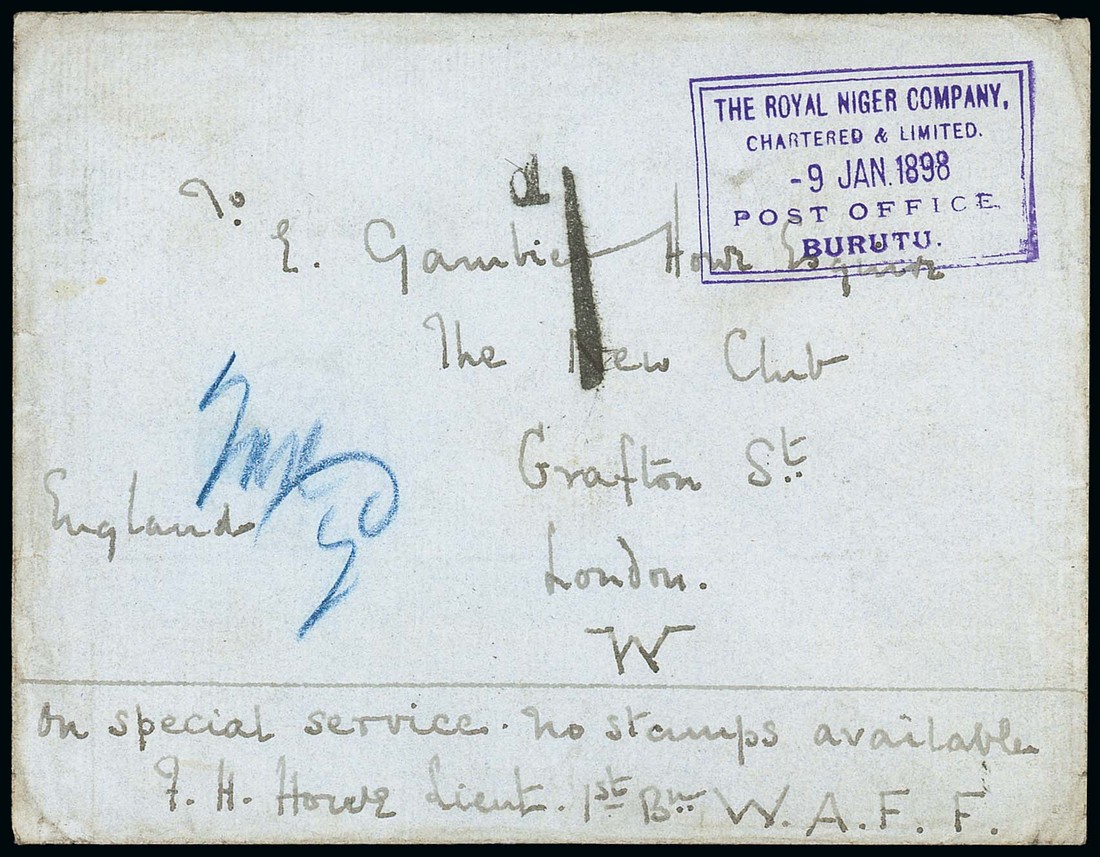 THE ROYAL NIGER COMPANY,
CHARTERED & LIMITED.
-9 JAN. 1898
POST OFFICE
BURUTU.
To
1d
E. Gambier Howe Esquire
The New Club
Grafton St.
London.
W
England
on special service. No stamps available
F. H. Howe Lieut. 1st Bn W. A. F. F.